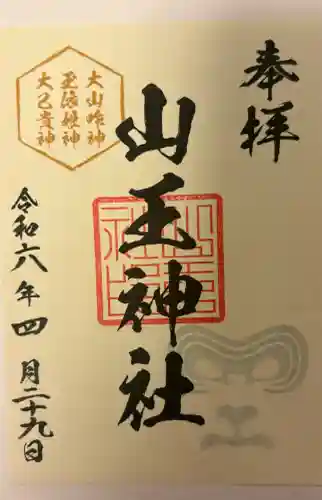 奉拝
大山咋神
玉依姫神
大己貴神
山王神社
令和六年四月二十九日